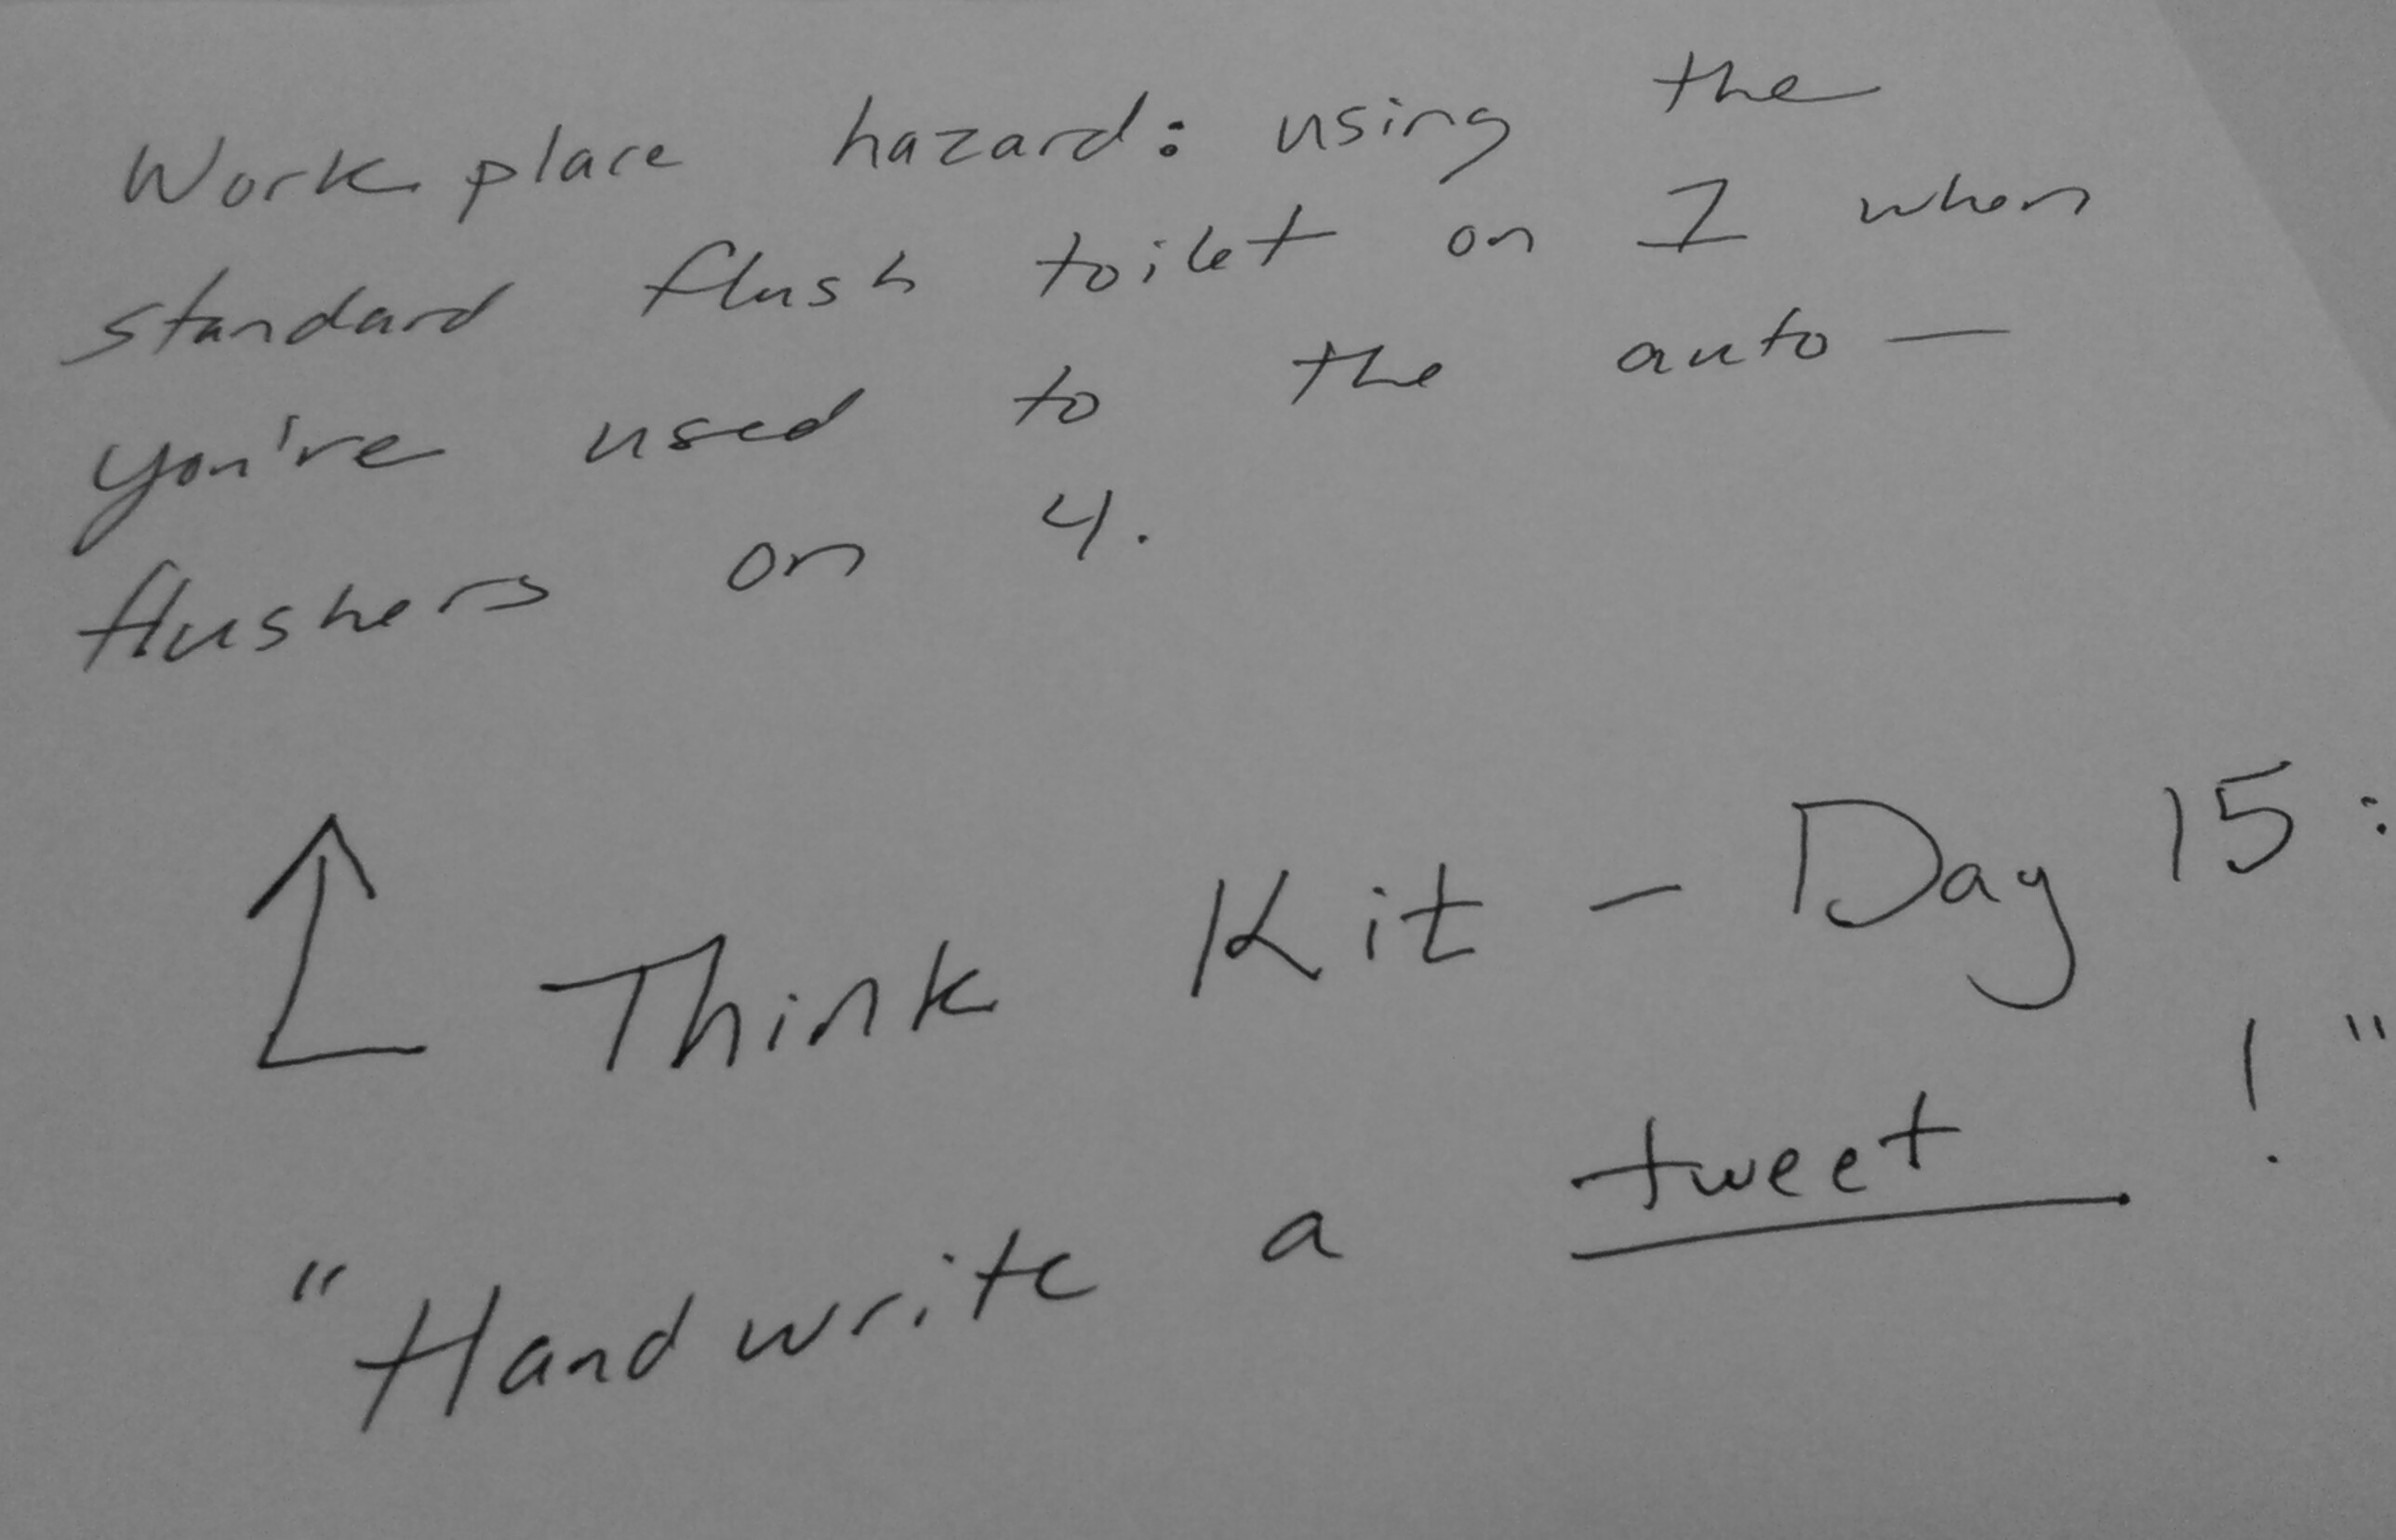 Workplace hazard: using the
standard flush toilet on 1 when
you're used to the auto-
flushers on 4.
Think Kit - Day 15:
"Handwrite a tweet!"